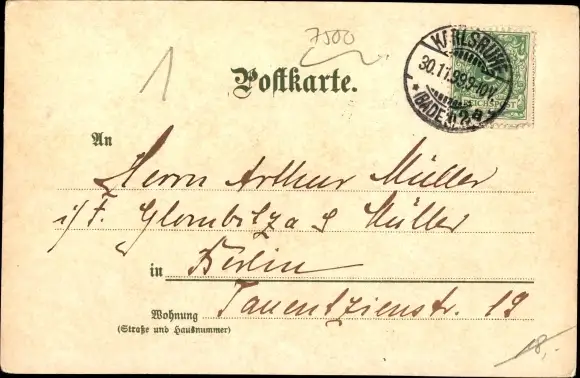 7500
1
Postkarte.
KARLSRUHE
30.11.99.9-10V.
(BADEN) 2
REICHSPOST
An
Herrn Arthur Müller
i/F. Glombitza & Müller
in Berlin
Wohnung Tauentzienstr. 19
(Straße und Hausnummer)
18,-